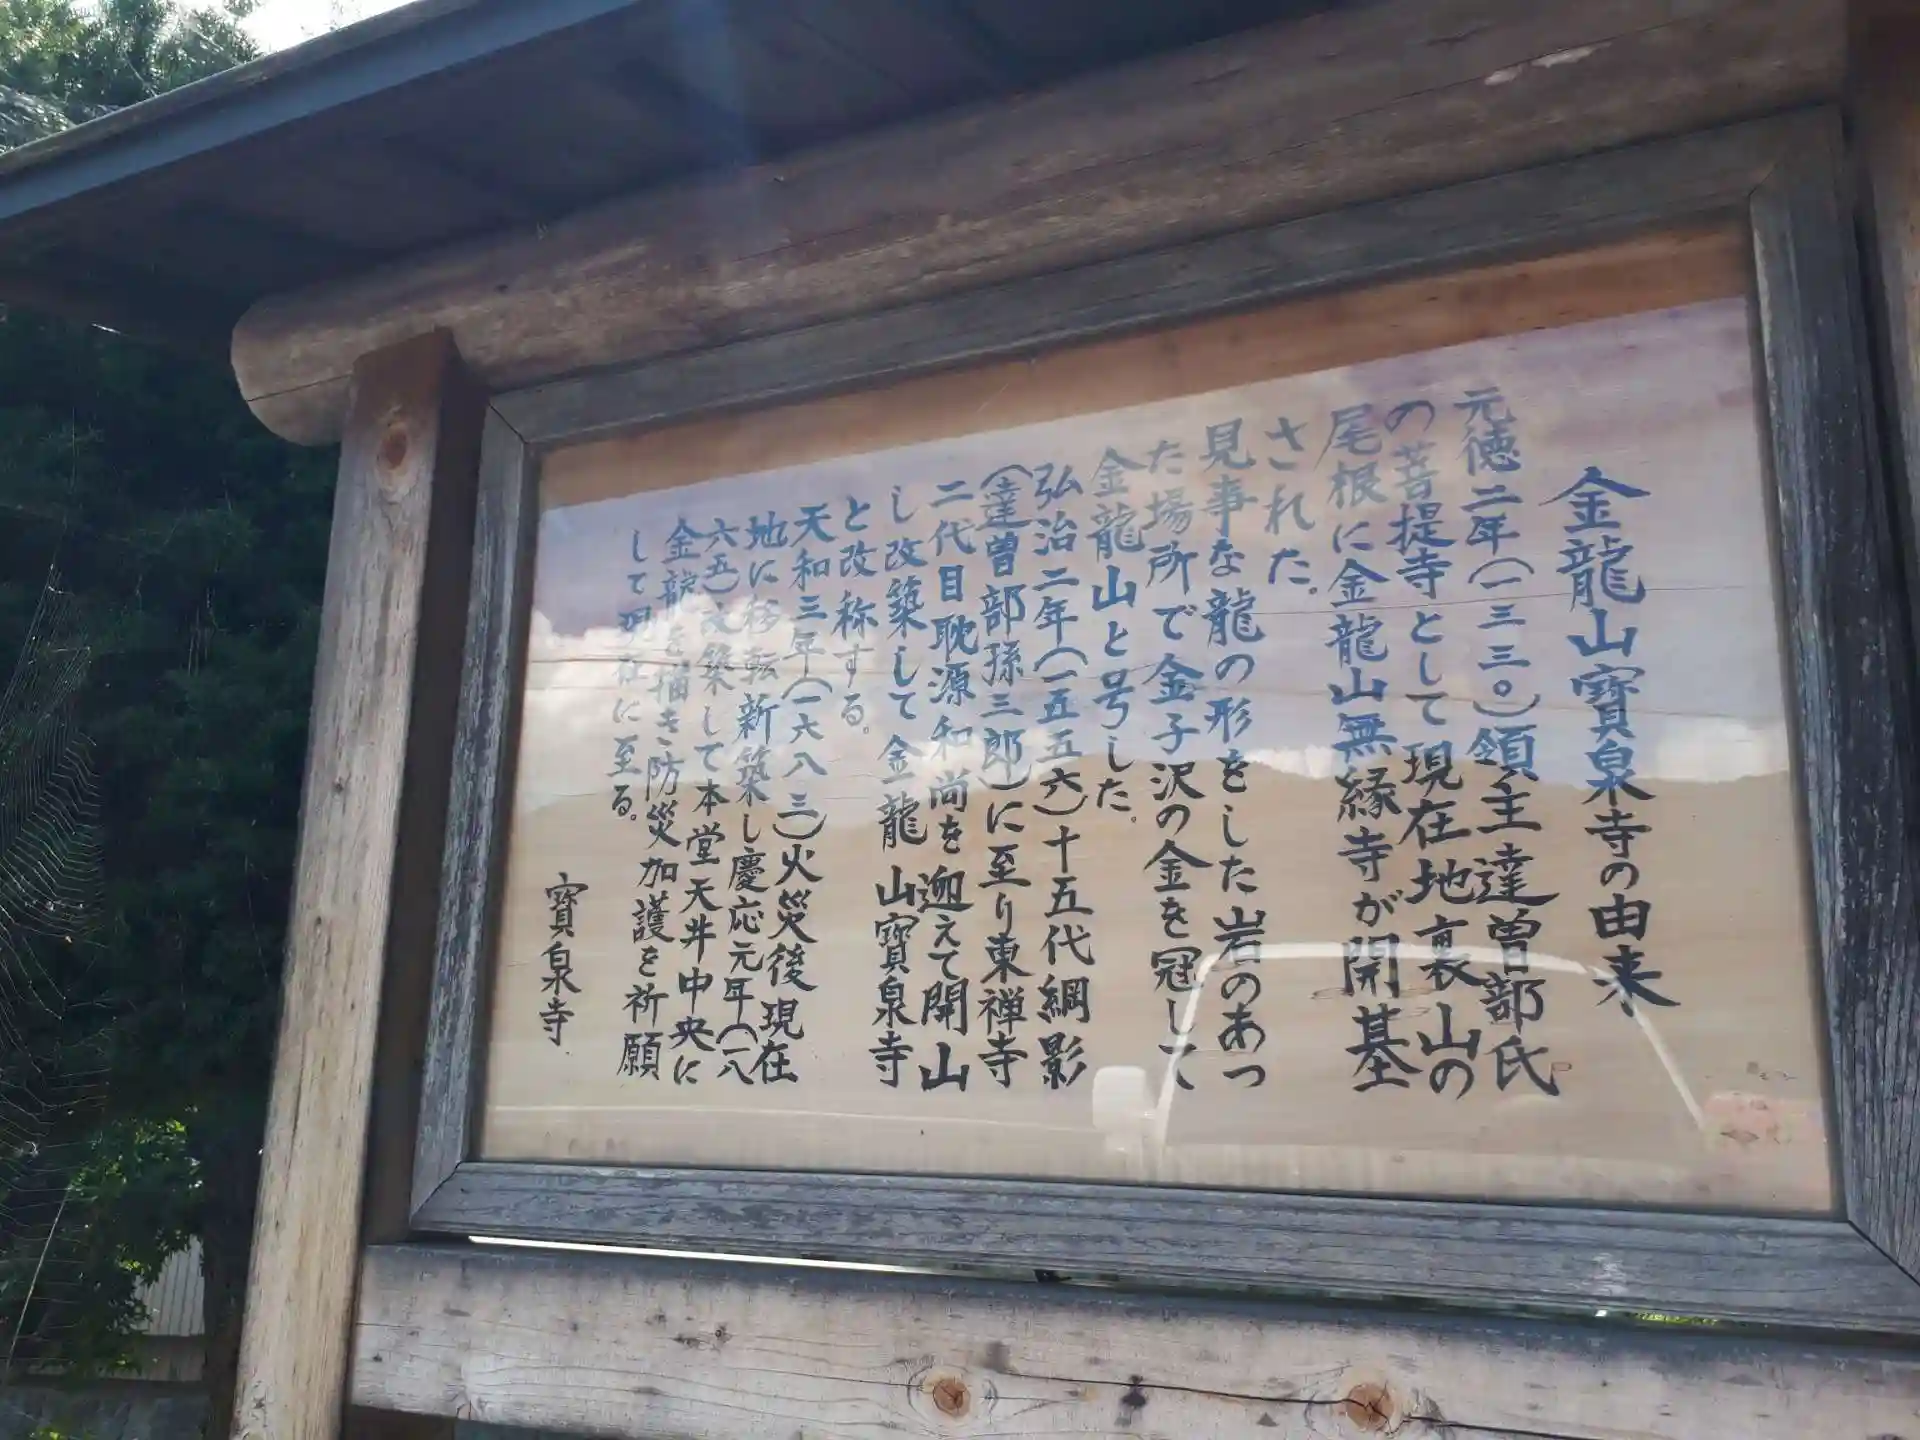 金龍山寳泉寺の由来
元徳二年(一三三〇)領主達曽部氏
の菩提寺として現在地裏山の
尾根に金龍山無縁寺が開基
された。
見事な龍の形をした岩のあっ
た場所で金子沢の金を冠して
金龍山と号した。
弘治二年(一五五六)十五代綱影
(達曽部孫三郎)に至り東禅寺
二代目耽源和尚を迎えて開山
し改築して金龍山寳泉寺
と改称する。
天和三年(一六八三)火災後現在
地に移転新築し慶応元年(一八
六五)改築して本堂天井中央に
金龍を描き防災加護を祈願
して現在に至る。
寳泉寺